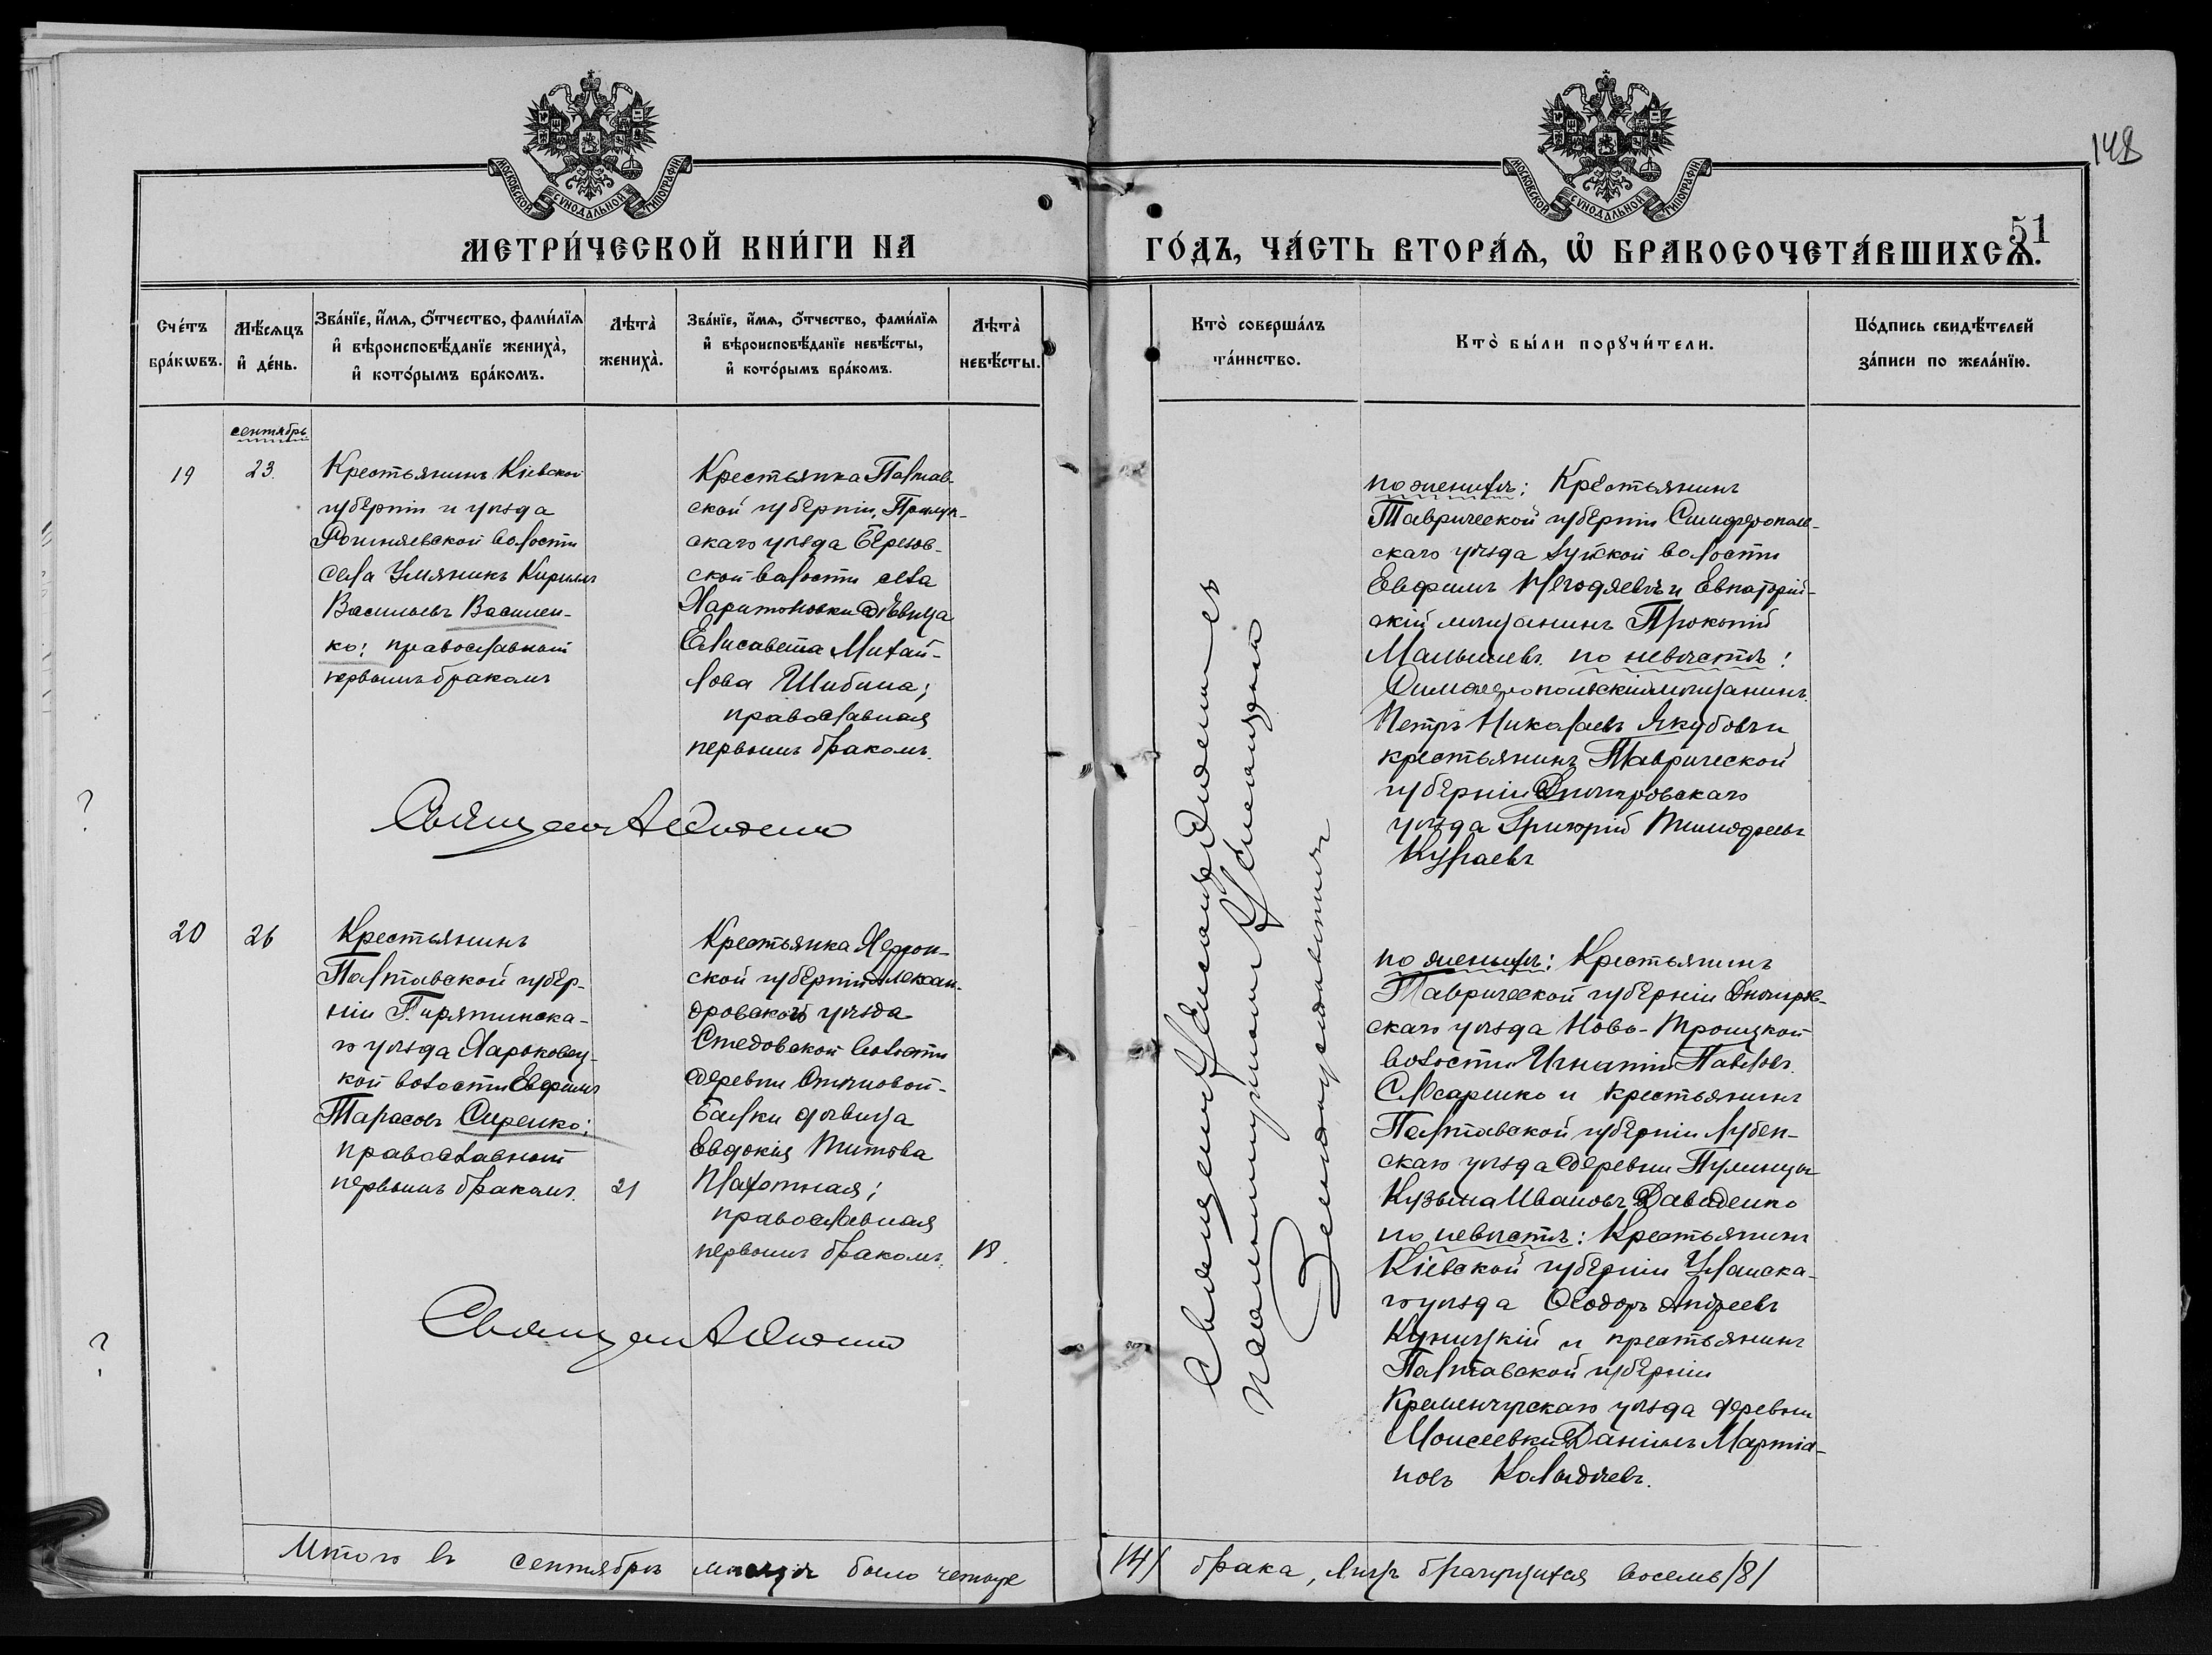 148
51
МОСКОВСКОЙ СУНОДАЛЬНОЙ ТИПОГРАФІИ
МОСКОВСКОЙ СУНОДАЛЬНОЙ ТИПОГРАФІИ
МЕТРИ́ЧЕСКОЙ КНИ́ГИ НА
ГО́ДЪ, ЧА́СТЬ ВТОРА́Ѧ, Ѽ БРАКОСОЧЕТА́ВШИХСѦ.
Сче́тъ бра́кѡвъ.
Мѣ́сяцъ и҆ де́нь.
Зва́нїе, и҆́мѧ, ѻ҆́тчество, фами́лїѧ
и҆ вѣроисповѣ́данїе жениха̀,
и҆ кото́рымъ бра́комъ.
Лѣта̀ жениха̀.
Зва́нїе, и҆́мѧ, ѻ҆́тчество, фами́лїѧ
и҆ вѣроисповѣ́данїе невѣ́сты,
и҆ кото́рымъ бра́комъ.
Лѣта̀ невѣ́сты.
Кто̀ соверша́лъ та́инство.
Кто̀ бы́ли порꙋчи́тели.
По́дпись свидѣ́телей
за́писи по жела́нїю.
сентябрь
19
23.
Крестьянинъ Кіевской
губерніи и уѣзда
волости
села Кириллъ
Васильевъ Василен-
ко; православный
первымъ бракомъ
Крестьянка Полтав-
ской губерніи, Прилук-
скаго уѣзда Березов-
ской волости села
Харитоновки дѣвица
Елисавета Михай-
лова Шибина;
православная
первымъ бракомъ.
по женихѣ: Крестьянинъ
Таврической губерніи Симферополь-
скаго уѣзда Зуйской волости
Евфимъ и Евпаторій-
скій мѣщанинъ Прокопій
Малышевъ. по невѣстѣ:
Симферопольскій мѣщанинъ
Петръ Николаевъ Якубовъ и
крестьянинъ Таврической
губерніи Днѣпровскаго
уѣзда Григорій Тимофеевъ
Священникъ А
20
26
Крестьянинъ
Полтавской губер-
ніи Пирятинска-
го уѣзда Харьковец-
кой волости Евфимъ
Тарасовъ Сиренко;
православный
первымъ бракомъ.
21
Крестьянка Херсон-
ской губерніи Алексан-
дровскаго уѣзда
волости
деревни
балки дѣвица
Евдокія Титова
Плахотная;
православная
первымъ бракомъ.
18.
по женихѣ: Крестьянинъ
Таврической губерніи Днѣпров-
скаго уѣзда Ново-Троицкой
волости Игнатій Павловъ
Слюсаренко и крестьянинъ
Полтавской губерніи Лубен-
скаго уѣзда деревни
Кузьма Ивановъ Давиденко
по невѣстѣ: Крестьянинъ
Кіевской губерніи Уманска-
го уѣзда Ѳеодоръ Андреевъ
Куницкій и крестьянинъ
Полтавской губерніи
Кременчугскаго уѣзда деревни
Моисеевки Даніилъ Мартіа-
новъ
Священникъ А
Священникъ Александръ
псаломщикомъ Александромъ
Итого въ сентябрѣ мѣсяцѣ было четыре
/4/ брака, лицъ брачущихся восемь /8/